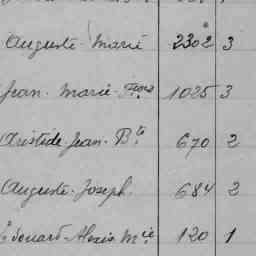 Auguste-Marie 2302 3
Jean-Marie-Fçois 1025 3
Aristide-Jean-Bte 670 2
Auguste-Joseph 684 2
Edouard-Alexis Mie 120 1